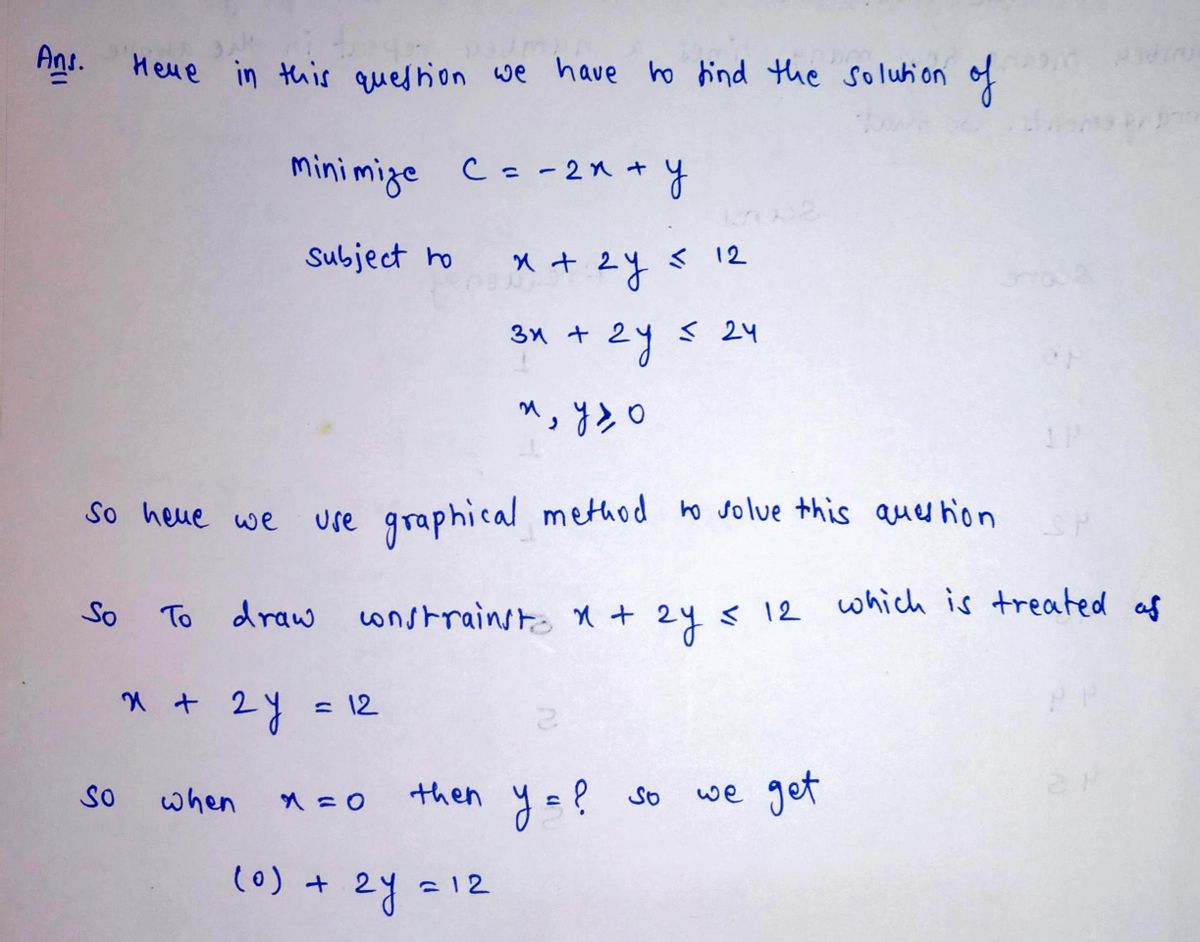 Ans. Here in this question we have to find the solution of
Minimize C = -2x + y
Subject to x + 2y ≤ 12
3x + 2y ≤ 24
x, y ≥ 0
so here we use graphical method to solve this question
So To draw constrainst x + 2y ≤ 12 which is treated as
x + 2y = 12
so when x = 0 then y = ? so we get
(0) + 2y = 12